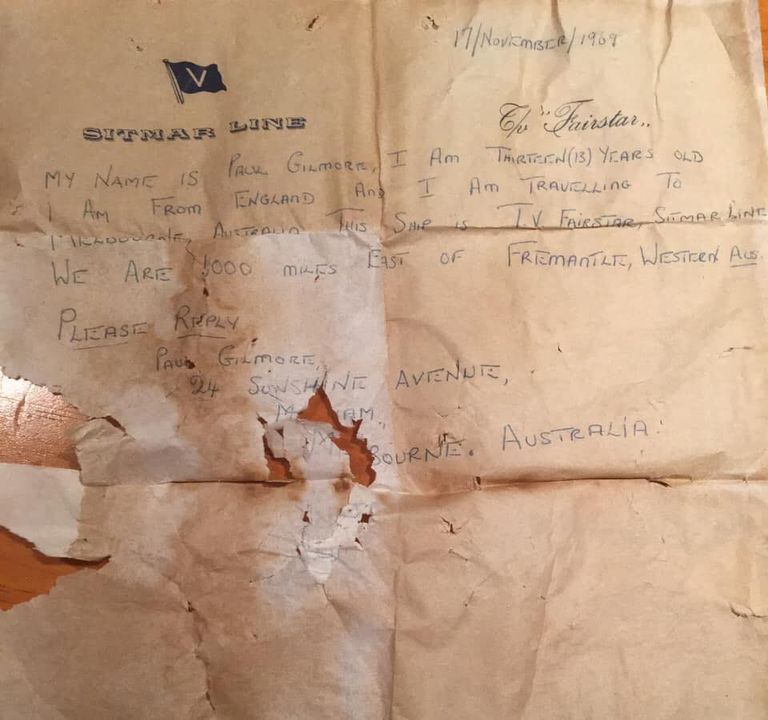 17/NOVEMBER/1969
V
SITMAR LINE
T/V "Fairstar"
MY NAME IS PAUL GILMORE, I AM THIRTEEN(13) YEARS OLD
I AM FROM ENGLAND AND I AM TRAVELLING TO
MELBOURNE, AUSTRALIA THIS SHIP IS T.V FAIRSTAR, SITMAR LINE
WE ARE 1000 MILES EAST OF FREMANTLE, WESTERN AUS.
PLEASE REPLY
PAUL GILMORE,
24 SUNSHINE AVENUE,
M AM,
BOURNE. AUSTRALIA.